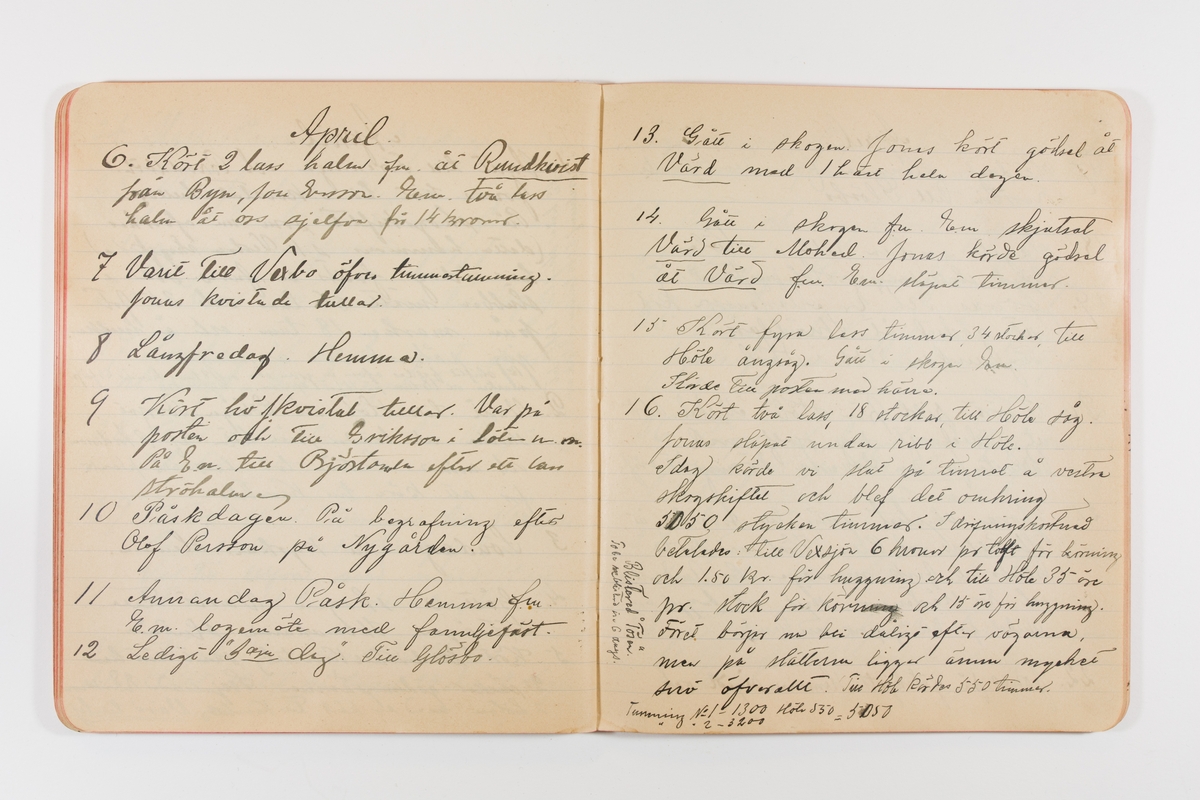 April.
6. Kört 2 lass halm fm. åt Rundkvist
från Byn, Jon Ersson. Em. två lass
halm åt oss sjelfva för 14 kronor.
7 Varit till Vexbo öfver timmertumning.
Jonas kvistade tullar.
8 Långfredag. Hemma.
9 Kört hö, kvistat tullar. Var på
posten och till Eriksson i m.m.
På Em. till efter ett lass
ströhalm
10 Påskdagen. På begrafning efter
Olof Persson på Nygården.
11 Annandag Påsk. Hemma fm.
E.m. logemöte med familjefäst.
12 Ledigt "3dje dag". Till Glösbo.
13. Gått i skogen. Jonas kört gödsel åt
Vård med 1 häst hela dagen.
14. Gått i skogen fm. Em skjutsat
Vård till Mohed. Jonas körde gödsel
åt Vård fm. Em. släpat timmer.
15 Kört fyra lass timmer, 34 stockar, till
Höle ångsåg. Gått i skogen Em.
Körde till posten med kärra.
16. Kört två lass, 18 stockar, till Höle såg.
Jonas släpat undan ribb i Höle.
Idag körde vi slut på timret å vestra
skogskiftet och blef det omkring
5050 stycken timmer. I drifningskostnad
betalades: till Vexsjön 6 kronor pr tolft för körning
och 1.50 kr. för huggning och till Höle 35 öre
pr. stock för körning och 15 öre för huggning.
Föret börjar nu bli dåligt efter vägarna,
men på slätterna ligger ännu mycket
snö öfverallt. Till Höle kördes 550 timmer.
Tumning No 1 - 1300 Höle 550 = 5050
" " 2 - 3200
Blisterst Tora